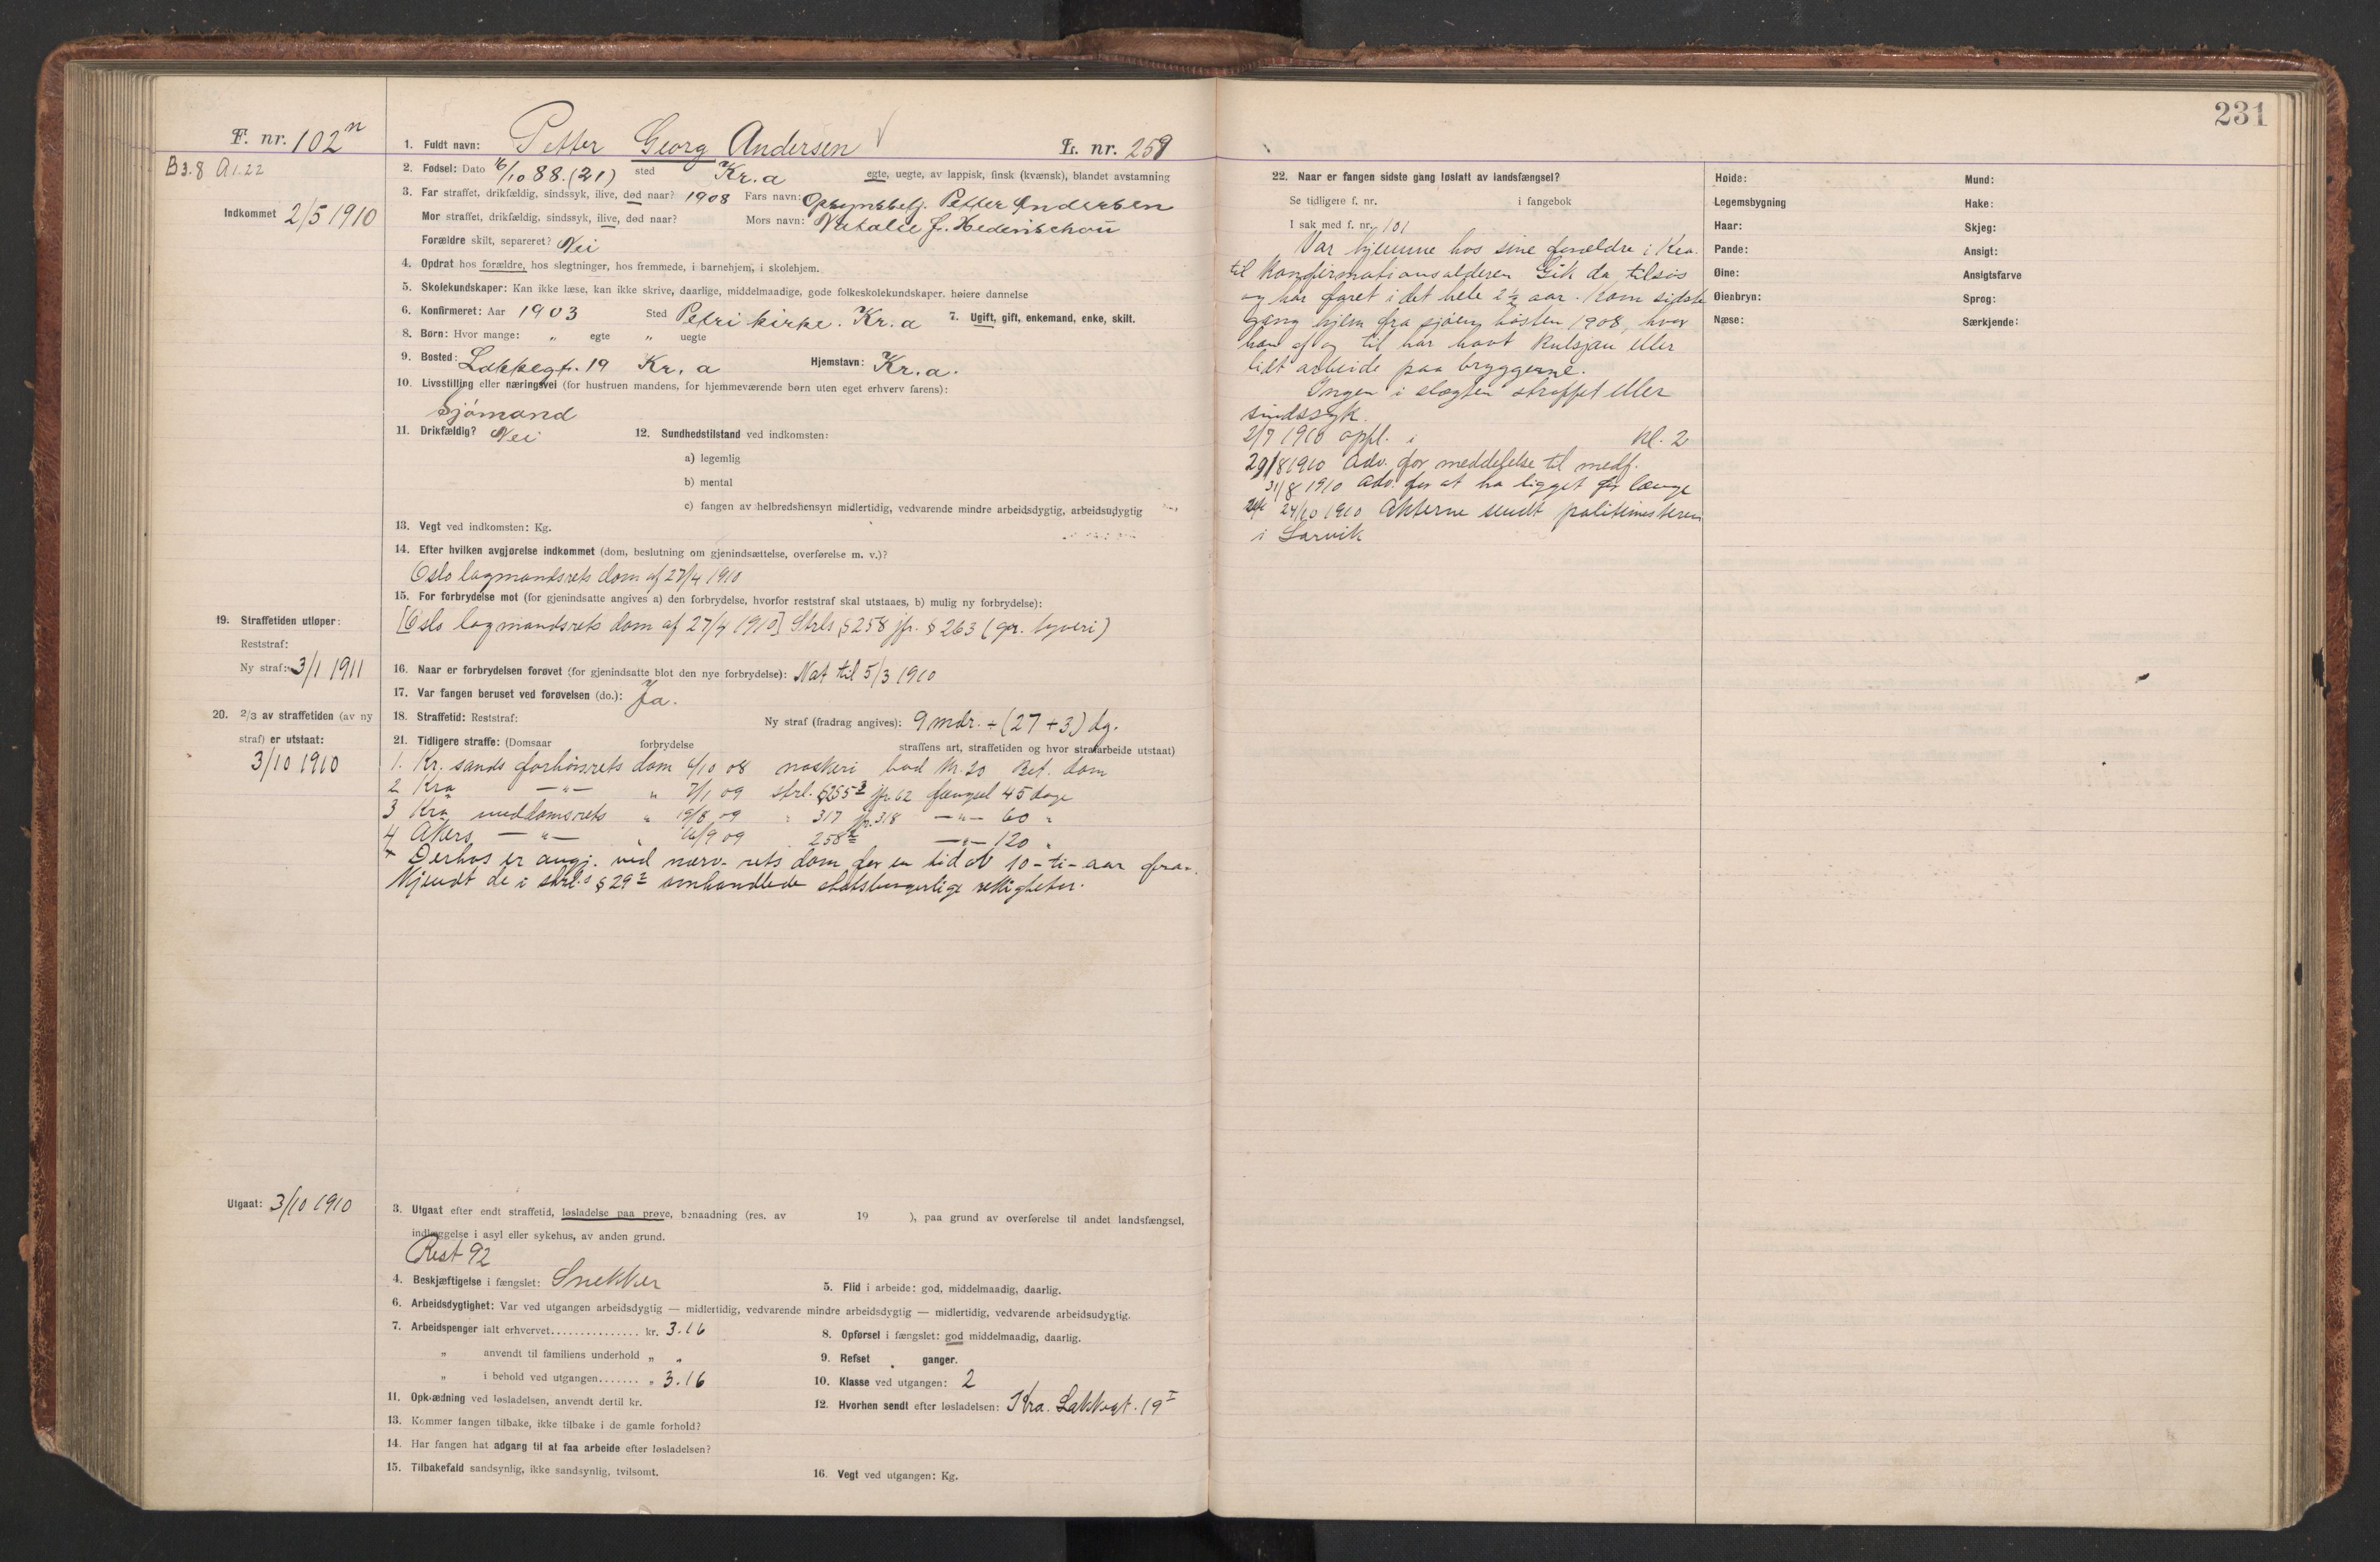 231
F. nr. 102 n
B3.8 A1.22
Indkommet 2/5 1910
1. Fuldt navn: Petter Georg Andersen
L. nr. 259
2. Fødsel: Dato 16/10 88. (21) sted Kr.a egte, uegte, av lappisk, finsk (kvænsk), blandet avstamning
3. Far straffet, drikfældig, sindssyk, ilive, død naar? 1908 Fars navn: Opsynsbetj. Petter Andersen
Mor straffet, drikfældig, sindssyk, ilive, død naar? Mors navn: Natalie J.
Forældre skilt, separeret? Nei
4. Opdrat hos forældre, hos slegtninger, hos fremmede, i barnehjem, i skolehjem.
5. Skolekundskaper: Kan ikke læse, kan ikke skrive, daarlige, middelmaadige, gode folkeskolekundskaper. høiere dannelse
6. Konfirmeret: Aar 1903 Sted Petri kirke. Kr.a 7. Ugift, gift, enkemand, enke, skilt.
8. Børn: Hvor mange: " egte " uegte
9. Bosted: Lakkegt. 19 Kr. a Hjemstavn: Kr.a.
10. Livsstilling eller næringsvei (for hustruen mandens, for hjemmeværende børn uten eget erhverv farens):
Sjømand
11. Drikfældig? Nei 12. Sundhedstilstand ved indkomsten:
a) legemlig
b) mental
c) fangen av helbredshensyn midlertidig, vedvarende mindre arbeidsdygtig, arbeidsudygtig
13. Vegt ved indkomsten: Kg.
14. Efter hvilken avgjørelse indkommet (dom, beslutning om gjenindsættelse, overførelse m. v.)?
Oslo lagmandsrets dom af 27/4 1910
15. For forbrydelse mot (for gjenindsatte angives a) den forbrydelse, hvorfor reststraf skal utstaaes, b) mulig ny forbrydelse):
[Oslo lagmandsrets dom af 27/4 1910] Strls § 258 jfr. § 263 (gr. tyveri)
19. Straffetiden utløper:
Reststraf:
Ny straf: 3/1 1911
16. Naar er forbrydelsen forøvet (for gjenindsatte blot den nye forbrydelse): Nat til 5/3 1910
17. Var fangen beruset ved forøvelsen (do.): Ja.
20. 2/3 av straffetiden (av ny
straf) er utstaat:
3/10 1910
18. Straffetid: Reststraf: Ny straf (fradrag angives): 9 mdr. ÷ (27 + 3) dg.
21. Tidligere straffe: (Domsaar forbrydelse straffens art, straffetiden og hvor strafarbeide utstaat)
1. Kr. sands forhørsrets dom 6/10 08 naskeri bod kr. 20 Bet. dom
2 Kra —"— " 7/1 09 strl. § 255 jfr 62 fængsel 45 dage
3 Kra meddomsrets " 19/8 09 " 317 jfr. 318 —"— 60 "
4 Akers —"— " /9 09 258 —"— 120 "
Derhos er angj. ved nærv. rets dom for en tid af 10-ti-aar fra-
kjendt de i strl.s § 29 omhandlede statsborgerlige rettigheter.
Utgaat: 3/10 1910
3. Utgaat efter endt straffetid, løsladelse paa prøve, benaadning (res. av 19 ), paa grund av overførelse til andet landsfængsel,
indlæggelse i asyl eller sykehus, av anden grund.
Rest 92
4. Beskjæftigelse i fængslet: Snekker 5. Flid i arbeide: god, middelmaadig, daarlig.
6. Arbeidsdygtighet: Var ved utgangen arbeidsdygtig — midlertidig, vedvarende mindre arbeidsdygtig — midlertidig, vedvarende arbeidsudygtig.
7. Arbeidspenger ialt erhvervet............... kr. 3.16 8. Opførsel i fængslet: god middelmaadig, daarlig.
" anvendt til familiens underhold " " 9. Refset ganger.
" i behold ved utgangen....... " 3.16 10. Klasse ved utgangen: 2
11. Opklædning ved løsladelsen, anvendt dertil kr. 12. Hvorhen sendt efter løsladelsen: Kra. Lakkegt. 19 I
13. Kommer fangen tilbake, ikke tilbake i de gamle forhold?
14. Har fangen hat adgang til at faa arbeide efter løsladelsen?
15. Tilbakefald sandsynlig, ikke sandsynlig, tvilsomt. 16. Vegt ved utgangen: Kg.
22. Naar er fangen sidste gang løslatt av landsfængsel?
Se tidligere f. nr. i fangebok
I sak med f. nr. 101
Var hjemme hos sine forældre i Kra.
til konfirmationsalderen Gik da tilsjøs
og har faret i det hele 2 ½ aar. Kom sidste
gang hjem fra sjøen høsten 1908, hvor
han af og til har havt kulsjau eller
lidt arbeide paa bryggerne.
Ingen i slægten straffet eller
sindssyk.
2/9 1910 opfl. i kl. 2
29/8 1910 Adv. for meddelelse til medf.
31/8 1910 Adv. for at ha ligget for længe
24/10 1910 Akterne sendt politimesteren
i Larvik
Høide: Mund:
Legemsbygning Hake:
Haar: Skjeg:
Pande: Ansigt:
Øine: Ansigtsfarve
Øienbryn: Sprog:
Næse: Særkjende: